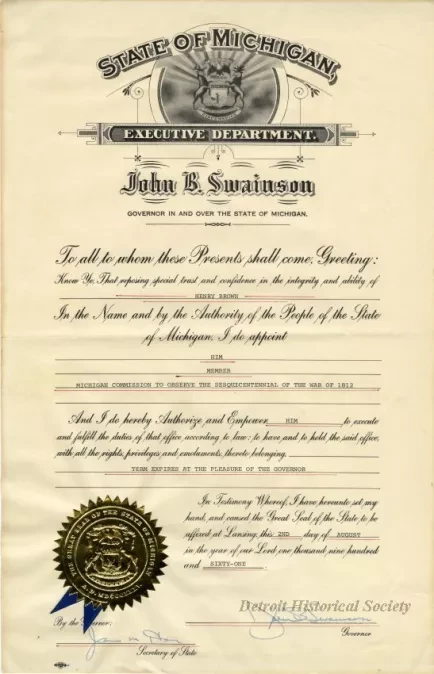 STATE OF MICHIGAN,
EXECUTIVE DEPARTMENT.
John B. Swainson
GOVERNOR IN AND OVER THE STATE OF MICHIGAN.
To all to whom these Presents shall come, Greeting:
Know Ye, That reposing special trust and confidence in the integrity and ability of
HENRY BROWN
In the Name and by the Authority of the People of the State
of Michigan, I do appoint
HIM
MEMBER
MICHIGAN COMMISSION TO OBSERVE THE SESQUICENTENNIAL OF THE WAR OF 1812
And I do hereby Authorize and Empower HIM to execute
and fulfill the duties of that office, according to law: to have and to hold the said office,
with all the rights, privileges and emoluments, thereto belonging.
TERM EXPIRES AT THE PLEASURE OF THE GOVERNOR
In Testimony Whereof, I have hereunto set my
hand, and caused the Great Seal of the State to be
affixed at Lansing, this 2ND day of AUGUST
in the year of our Lord one thousand nine hundred
and SIXTY-ONE.
THE GREAT SEAL OF THE STATE OF MICHIGAN
Detroit Historical Society
By the Governor:
John B. Swainson
Governor
Secretary of State